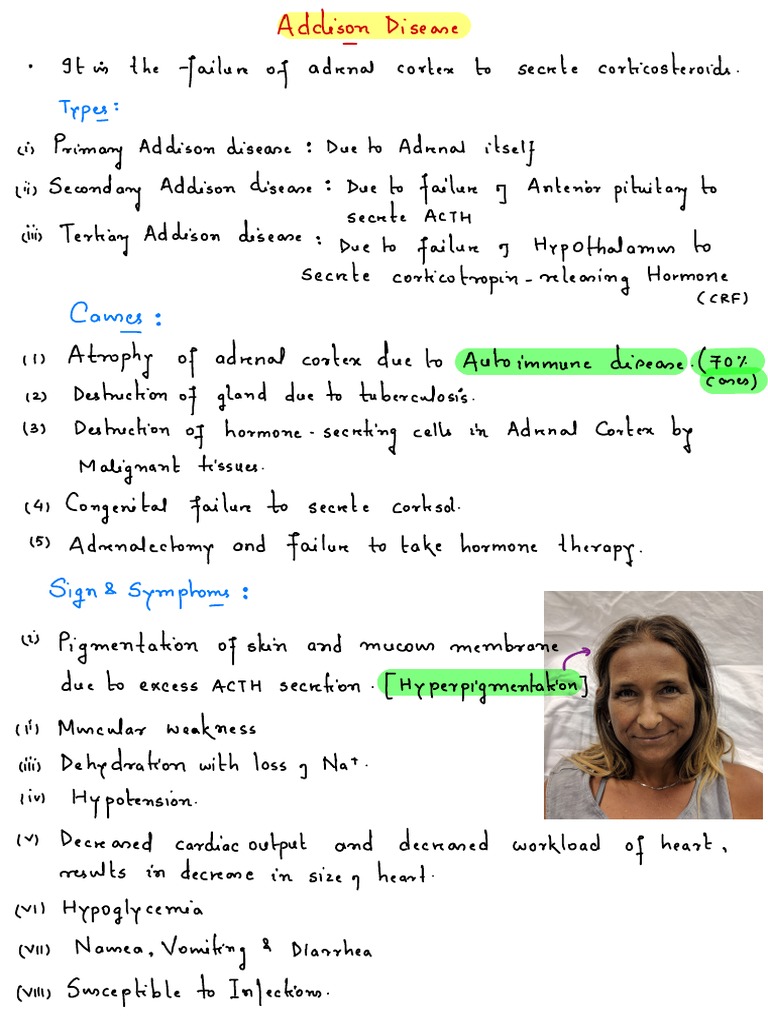 Addison Disease
• It is the failure of adrenal cortex to secrete corticosteroids.
Types:
(i) Primary Addison disease : Due to Adrenal itself
(ii) Secondary Addison disease : Due to failure of Anterior pituitary to
secrete ACTH
(iii) Tertiary Addison disease : Due to failure of Hypothalamus to
secrete corticotropin-releasing Hormone
(CRF)
Causes:
(1) Atrophy of adrenal cortex due to Autoimmune disease. (70%
cases)
(2) Destruction of gland due to tuberculosis.
(3) Destruction of hormone-secreting cells in Adrenal Cortex by
Malignant tissues.
(4) Congenital failure to secrete cortisol.
(5) Adrenalectomy and failure to take hormone therapy.
Sign & Symptoms:
(i) Pigmentation of skin and mucous membrane
due to excess ACTH secretion. [Hyperpigmentation]
(ii) Muscular weakness
(iii) Dehydration with loss of Na+.
(iv) Hypotension.
(v) Decreased cardiac output and decreased workload of heart,
results in decrease in size of heart.
(vi) Hypoglycemia
(vii) Nausea, Vomiting & Diarrhea
(viii) Susceptible to Infections.